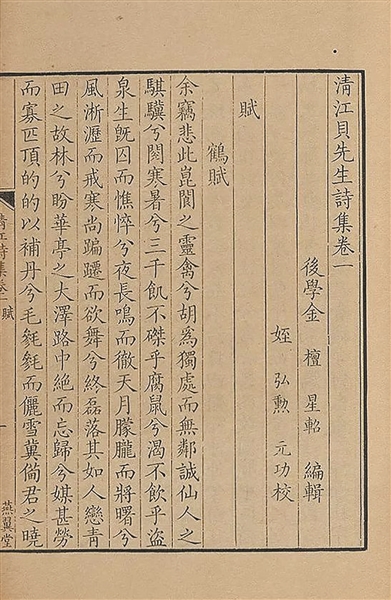 清江貝先生詩集卷一
後學金 檀 星軺 編輯
姪 弘勲 元功校
賦
鶴賦
余竊悲此崑閬之靈禽兮胡爲獨處而無鄰誠仙人之
騏驥兮閱寒暑兮三千飢不磔乎腐鼠兮渴不飲乎盜
泉生旣囚而憔悴兮夜長鳴而徹天月朦朧而將曙兮
風淅瀝而戒寒尚蹁躚而欲舞兮終磊落其如人戀青
田之故林兮盼華亭之大澤路中絶而忘歸兮媒甚勞
而寡匹頂的的以補丹兮毛毿毿而儷雪冀倘君之曉
清江詩集卷一 賦
一
燕翼堂